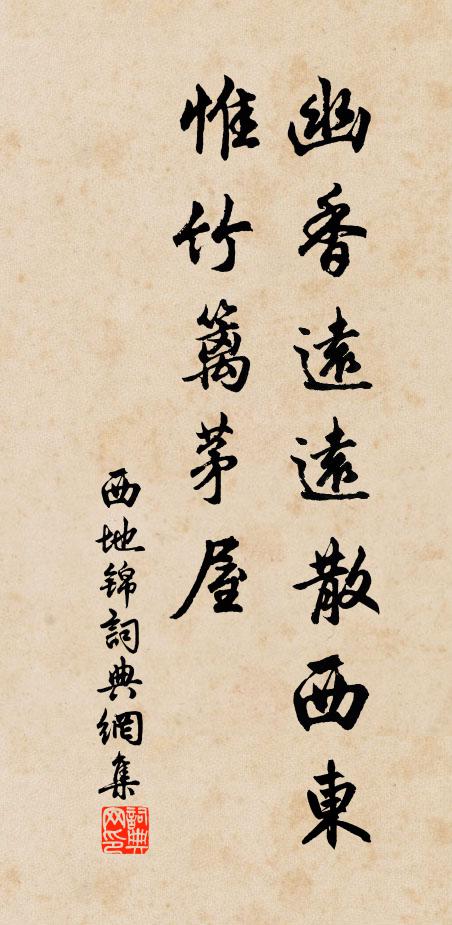 幽香遠遠散西東
惟竹籬茅屋
西地锦詞典網集
詞典网印